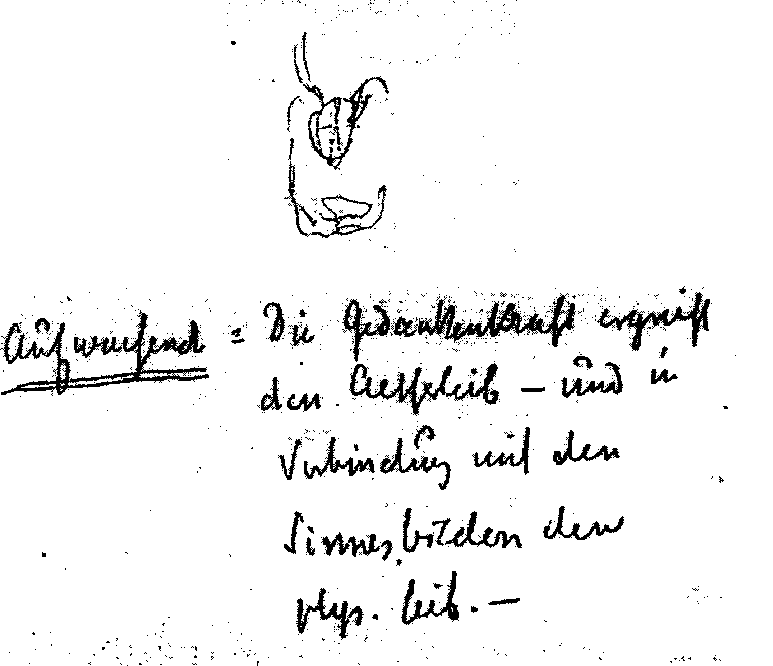 Aufwachend = Die Gedankenkraft ergreift
den Aetherleib – und in
Verbindung mit den
Sinnesbilden den
phys. Leib. –